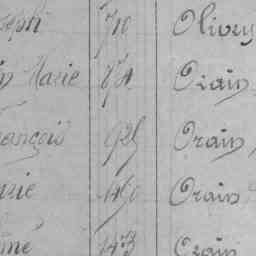 seph 710 Olivry
in Marie 871 Orain
rançois 925 Orain
arie 490 Orain
mé 473 Orain